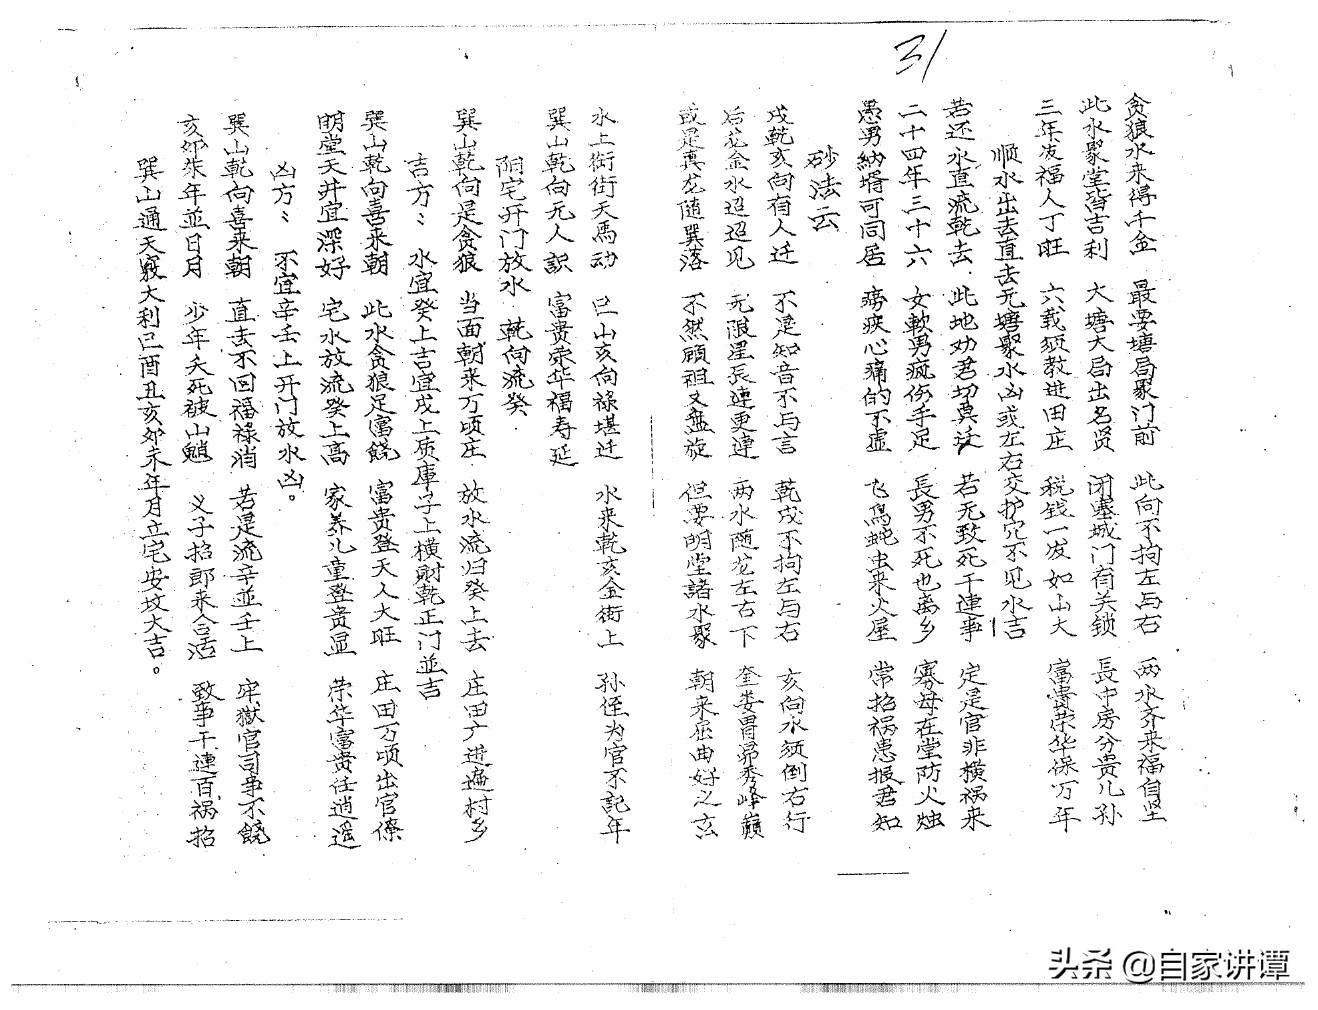 31
贪狼水来得千金 最要塘局聚门前 此向不拘左与右 两水齐来福自坚
此水聚堂皆吉利 大塘大局出名贤 闭塞城门有关锁 長中房分贵儿孙
三年发福人丁旺 六载须教进田庄 税钱一发如山大 富寿荣华保万年
顺水出去直去无塘聚水凶或左右交护穴不见水吉
若还水直流乾去 此地劝君切莫迁 若无致死干連事 定是官非横祸来
二十四年三十六 女軟男疯伤手足 長男不死也离乡 寡母在堂防火烛
愚男納壻可同居 痨疾心痛的不虚 飞鳥蛇虫来火屋 常招祸患报君知
砂法云
戍乾亥向有人迁 不是知音不与言 乾戍不拘左与右 亥向水须倒右行
后龙金水迢迢见 无限星辰連更連 两水随龙左右下 奎娄胃昴秀峰巔
或是真龙随巽落 不然顾祖又盘旋 但要明堂諸水聚 朝来屈曲好之玄
水上街街天馬动 巳山亥向禄堪迁 水来乾亥金街上 孙侄为官不記年
巽山乾向无人識 富贵荣华福寿延
阳宅开门放水 乾向流癸
巽山乾向是贪狼 当面朝来万顷庄 放水流归癸上去 庄田广进遍村乡
吉方: 水宜癸上吉宜戍上质庫子上横財乾正门並吉
巽山乾向喜来朝 此水贪狼足富饒 富贵登天人大旺 庄田万顷出官僚
明堂天井宜深好 宅水放流癸上高 家养儿童登贵显 荣华富贵任逍遥
凶方: 不宜辛壬上开门放水凶。
巽山乾向喜来朝 直去不回福禄消 若是流辛並壬上 牢獄官司事不饒
亥夘柒年並日月 少年夭死被山魈 义子招郎来合活 致事干連百祸招
巽山通天竅大利巳酉丑亥夘未年月立宅安坟大吉。
头条 @自家讲谭